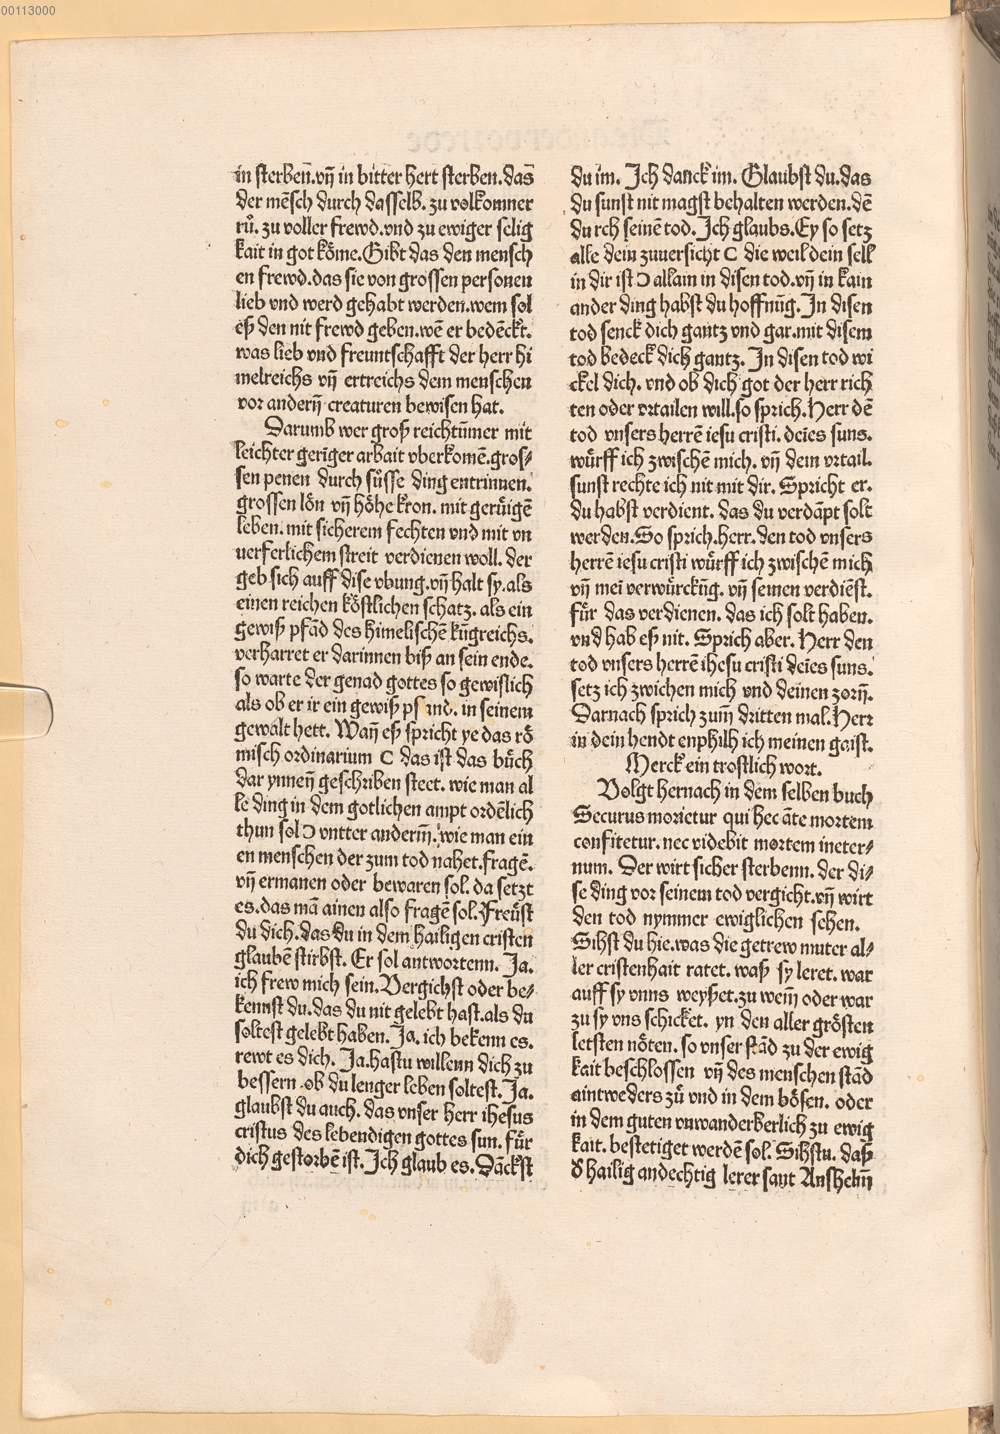 00113000
in sterben̄.vn̄ in bitter hert sterben.das
der mēsch durch dasselb. zu volkomner
rů. zu voller frewd.vnd zu ewiger selig
kait in got kōme.Gibt das den mensch
en frewd.das sie von grossen personen
lieb vnd werd gehabt werden.wem sol
eß den nit frewd geben.wē er bedēckt.
was lieb vnd freuntschafft der herr hi
melreichs vn̄ ertreichs dem menschen
vor andern̄ creaturen bewisen hat.
Darumb wer groß reichtūmer mit
leichter gerīger arbait vberkomē.gros⸗
sen penen durch süsse ding entrinnen.
grossen lön vn̄ höhe kron. mit gerüigē
leben. mit sicherem fechten vnd mit vn
uerferlichem streit verdienen woll. der
geb sich auff dise vbung.vn̄ halt sy.als
einen reichen köstlichen schatz. als ein
gewiß pfād des himelischē kūgreichs.
verharret er darinnen biß an sein ende.
so warte der genad gottes so gewislich
als ob er ir ein gewiß in seinem
gewalt hett. Wan̄ eß spricht ye das rö
misch ordinarium C das ist das bůch
dar ynnen̄ geschriben steet. wie man al
le ding in dem gotlichen ampt ordēlich
thun sol Ɔ vntter anderm̄. wie man ein
en menschen der zum tod nahet.fragē.
vn̄ ermanen oder bewaren sol. da setzt
es.das mā ainen also fragē sol.Freüst
du dich.das du in dem hailigen cristen
glaubē stirbst. Er sol antwortenn. Ja.
ich frew mich sein.Vergichst oder be⸗
kennst du.das du nit gelebt hast.als du
soltest gelebt haben. Ja. ich bekenn es.
rewt es dich. Ja.hastu willenn dich zu
bessern .ob du lenger leben soltest. Ja.
glaubst du auch. das vnser herr ihesus
cristus des lebendigen gottes sun. für
dich gestorbē ist. Ich glaub es. Dāckst
du im. Ich danck im. Glaubst du.das
du sunst nit magst behalten werden.dē
du rch seinē tod. Ich glaubs. Ey so setz
alle dein zuuersicht C die weil dein sell
in dir ist Ɔ allain in disen tod.vn̄ in kain
ander ding habst du hoffnūg. In disen
tod senck dich gantz vnd gar.mit disem
tod bedeck dich gantz. In disen tod wi
ckel dich. vnd ob dich got der herr rich
ten oder vrtailen will.so sprich.Herr dē
tod vnsers herrē iesu cristi. deīes suns.
würff ich zwischē mich. vn̄ dem vrtail.
sunst rechte ich nit mit dir. Spricht er.
du habst verdient. das du verdāpt solt
werden.So sprich.herr.den tod vnsers
herrē iesu cristi würff ich zwischē mich
vn̄ mei verwürckūg. vn̄ seinen verdiēst.
für das verdienen. das ich solt haben.
vnd hab eß nit. Sprich aber. Herr den
tod vnsers herrē ihesu cristi deīes suns.
setz ich zwichen mich vnd deinen zorn̄.
Darnach sprich zum̄ dritten mal.Herr
in dein hendt enphilh ich meinen gaist.
Merck ein trostlich wort.
Volgt hernach in dem selben buch
Securus morietur qui hec āte mortem
confitetur. nec videbit mortem ineter⸗
num. Der wirt sicher sterbenn. der di⸗
se ding vor seinem tod vergicht.vn̄ wirt
den tod nymmer ewiglichen sehen.
Sihst du hie.was die getrew muter al⸗
ler cristenhait ratet. waß sy leret. war
auff sy vnns weyßet.zu wem̄ oder war
zu sy vns schicket. yn den aller grösten
letsten nöten. so vnser stād zu der ewig
kait beschlossen vn̄ des menschen stād
aintweders zů vnd in dem bösen. oder
in dem guten vnwanderberlich zu ewig
kait. bestetiget werdē sol. Sihstu. daß
d̄ hailig andechtig lerer sant Anshelm̄